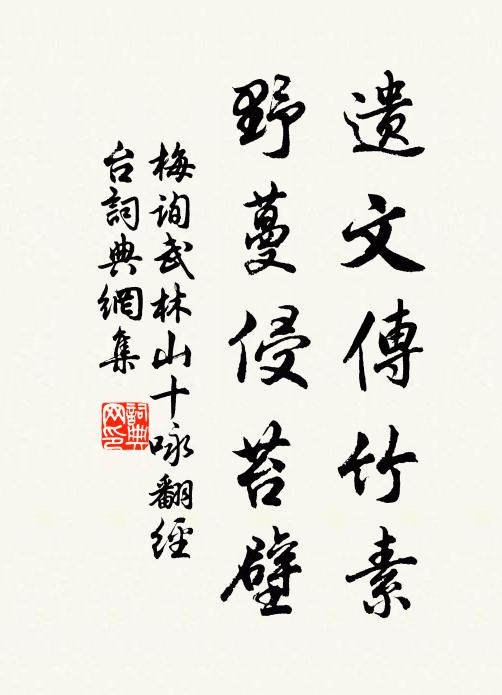 遺文傳竹素
野蔓侵苔壁
梅詢武林山十咏翻經
台詞典網集
詞典
网印